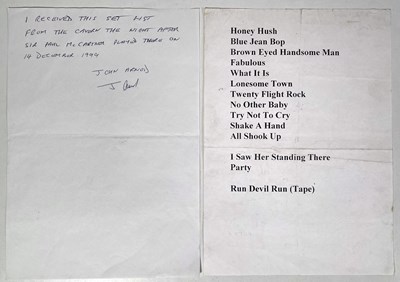 I RECEIVED THIS SET LIST
FROM THE CAVERN THE NIGHT AFTER
SIR PAUL McCARTNEY PLAYED THERE ON
14 DECEMBER 1999
JOHN ARNOLD
Honey Hush
Blue Jean Bop
Brown Eyed Handsome Man
Fabulous
What It Is
Lonesome Town
Twenty Flight Rock
No Other Baby
Try Not To Cry
Shake A Hand
All Shook Up
I Saw Her Standing There
Party
Run Devil Run (Tape)